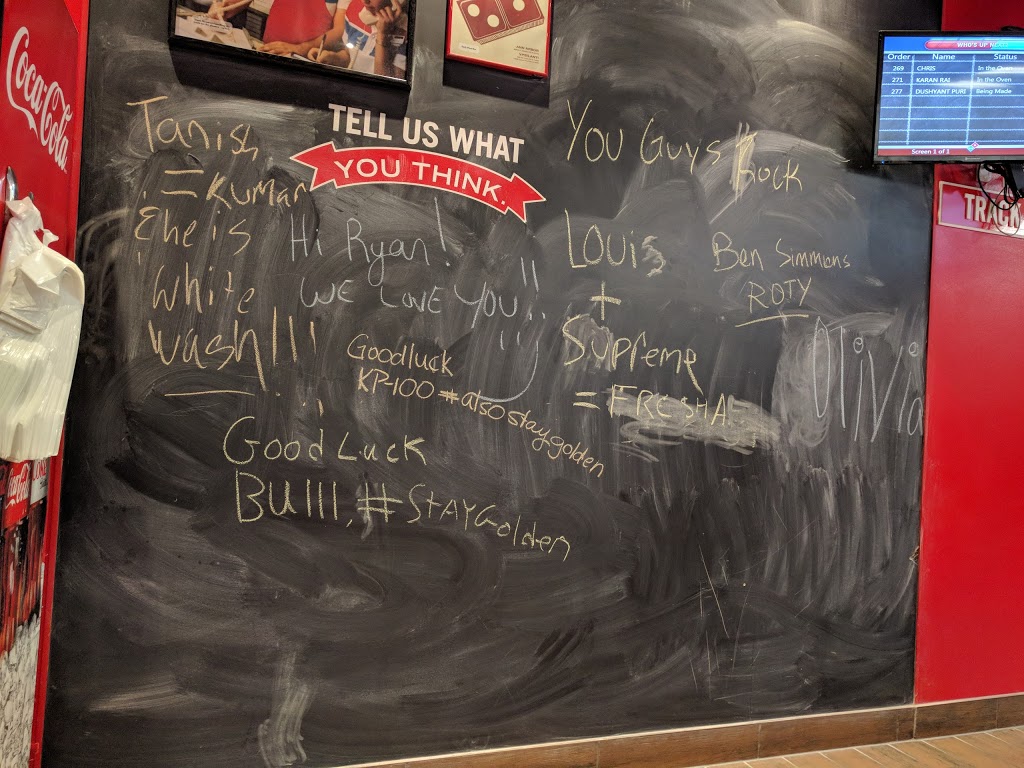 Coca-Cola
TELL US WHAT
YOU THINK.
Tanish
= Kumar
She is
White
Wash!!!
Hi Ryan!
WE LOVE YOU!!
Goodluck
KP-100 #alsostaygolden
Good Luck
Bulll, #STAYGolden
You Guys Rock
Louis
+
Supreme
= FRESHAF
Ben Simmons
ROTY
Olivia
WHO'S UP NEXT
Order Name Status
269 CHRIS In the Oven
271 KARAN RAI In the Oven
277 DUSHYANT PURI Being Made
Screen 1 of 1
TRACK